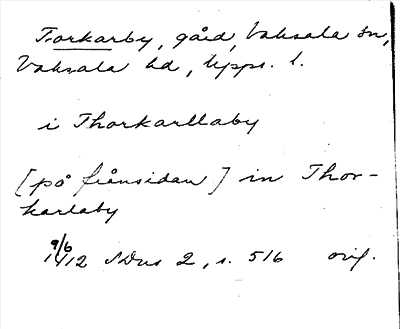 Torkarby, gård, Vaksala sn,
Vaksala hd, Upps. l.
i Thorkarllaby
[på frånsidan] in Thor-
karlaby
9/6 1412 SDns 2, s. 516 orig.